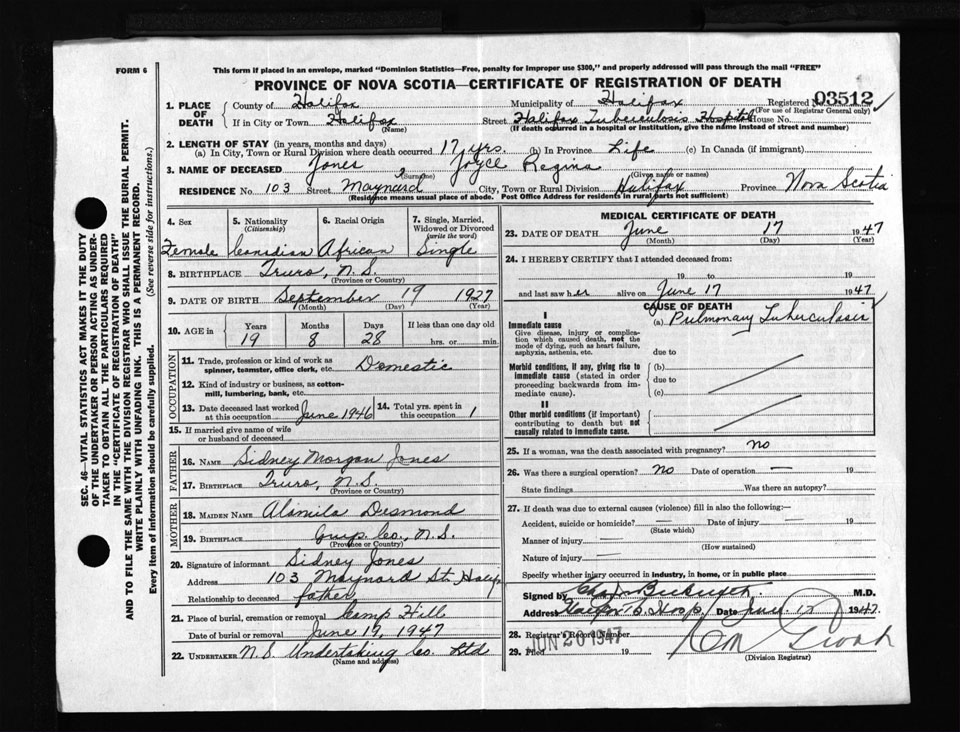 FORM 6
This form if placed in an envelope, marked "Dominion Statistics—Free, penalty for improper use $300," and properly addressed will pass through the mail "FREE"
PROVINCE OF NOVA SCOTIA—CERTIFICATE OF REGISTRATION OF DEATH
1. PLACE OF DEATH County of Halifax Municipality of Halifax Registered No. 03512
(For use of Registrar General only)
If in City or Town Halifax Street Halifax Tuberculosis Hospital House No.
(Name) (If death occurred in a hospital or institution, give the name instead of street and number)
2. LENGTH OF STAY (in years, months and days)
(a) In City, Town or Rural Division where death occurred 17 yrs. (b) In Province Life (c) In Canada (if immigrant)
3. NAME OF DECEASED Jones Joyce Regina
(Surname) (Given name or names)
RESIDENCE No. 103 Street Maynard City, Town or Rural Division Halifax Province Nova Scotia
(Residence means usual place of abode. Post Office Address for residents in rural parts not sufficient)
SEC. 46—VITAL STATISTICS ACT MAKES IT THE DUTY
OF THE UNDERTAKER OR PERSON ACTING AS UNDER-
TAKER TO OBTAIN ALL THE PARTICULARS REQUIRED
IN THE "CERTIFICATE OF REGISTRATION OF DEATH"
AND TO FILE THE SAME WITH THE DIVISION REGISTRAR WHO SHALL ISSUE THE BURIAL PERMIT.
WRITE PLAINLY WITH UNFADING INK. THIS IS A PERMANENT RECORD.
Every item of Information should be carefully supplied. (See reverse side for instructions.)
4. Sex 5. Nationality 6. Racial Origin 7. Single, Married,
(Citizenship) Widowed or Divorced
(write the word)
Female Canadian African Single
8. BIRTHPLACE Truro, N.S.
(Province or Country)
9. DATE OF BIRTH September 19 1927
(Month) (Day) (Year)
10. AGE in Years Months Days If less than one day old
19 8 28 hrs. or min.
OCCUPATION
11. Trade, profession or kind of work as
spinner, teamster, office clerk, etc. Domestic
12. Kind of industry or business, as cotton-
mill, lumbering, bank, etc.
13. Date deceased last worked at this occupation June 1946 14. Total yrs. spent in this occupation 1
15. If married give name of wife
or husband of deceased
FATHER
16. NAME Sidney Morgan Jones
17. BIRTHPLACE Truro, N.S.
(Province or Country)
MOTHER
18. MAIDEN NAME Desmond
19. BIRTHPLACE Guys. Co., N.S.
(Province or Country)
20. Signature of informant Sidney Jones
Address 103 Maynard St.
Relationship to deceased father
21. Place of burial, cremation or removal Camp Hill
Date of burial or removal June 19, 1947
22. UNDERTAKER N.S. Undertaking Co. Ltd
(Name and address)
MEDICAL CERTIFICATE OF DEATH
23. DATE OF DEATH June 17 1947
(Month) (Day) (Year)
24. I HEREBY CERTIFY that I attended deceased from:
19 to 19
and last saw her alive on June 17 1947
CAUSE OF DEATH
I
Immediate cause (a) Pulmonary Tuberculosis
Give disease, injury or complica-
tion which caused death, not the
mode of dying, such as heart failure,
asphyxia, asthenia, etc. due to
Morbid conditions, if any, giving rise to (b)
immediate cause (stated in order due to
proceeding backwards from im-
mediate cause). (c)
II
Other morbid conditions (if important)
contributing to death but not
causally related to immediate cause.
25. If a woman, was the death associated with pregnancy? no
26. Was there a surgical operation? No Date of operation — 19
State findings Was there an autopsy?
27. If death was due to external causes (violence) fill in also the following:—
Accident, suicide or homicide? Date of injury — 19
(State which)
Manner of injury
(How sustained)
Nature of injury
Specify whether injury occurred in industry, in home, or in public place
Signed by M.D.
Address Date June 1947
28. Registrar's Record Number
29. Filed JUN 20 1947 19
(Division Registrar)